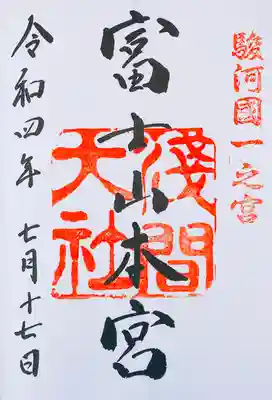 駿河國一之宮
富士山本宮
淺間
大社
令和四年 七月十七日